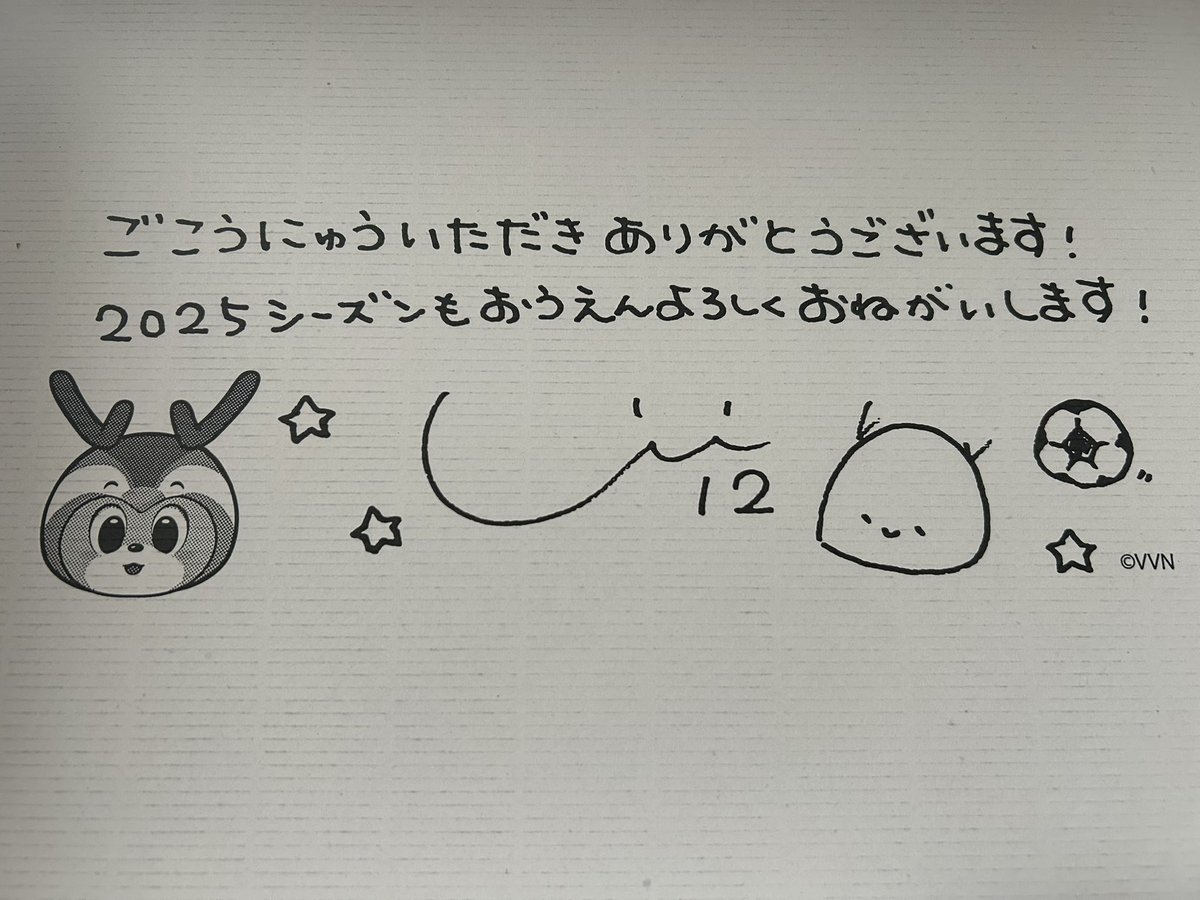 ごこうにゅういただき ありがとうございます！
2025シーズンもおうえんよろしくおねがいします！
12
©VVN